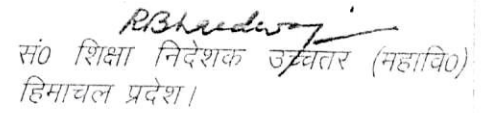 RBhardwaj
सं0 शिक्षा निदेशक उच्चतर (महावि0)
हिमाचल प्रदेश।